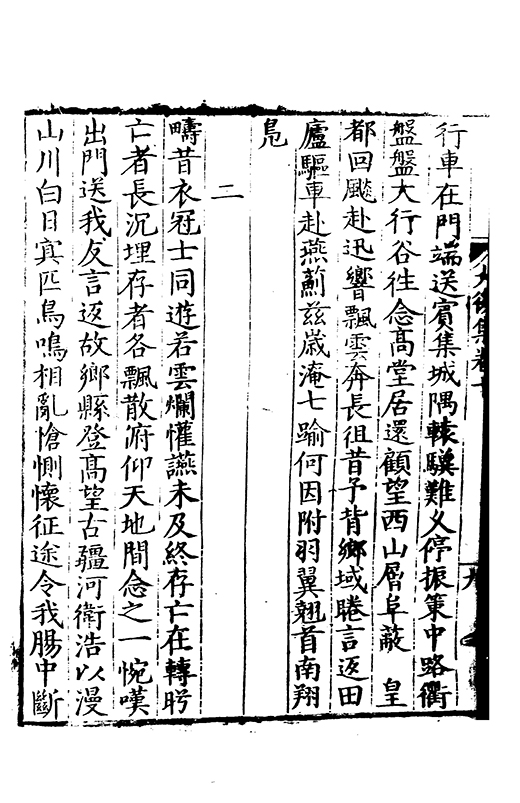 行車在門端送賓集城隅轅驥難久停振策中路衢
盤盤大行谷徃念高堂居還顧望西山層阜蔽 皇
都回飈赴迅響飄雲奔長徂昔予背鄉域睠言返田
廬驅車赴燕薊茲歲淹七踰何因附羽翼翹首南翔
鳧
二
疇昔衣冠士同遊若雲爛懽讌未及終存亡在轉眄
亡者長沉埋存者各飄散俯仰天地間念之一惋嘆
出門送我友言返故鄉縣登高望古疆河衛浩以漫
山川白日寘匹鳥鳴相亂愴惻懷征途令我腸中斷